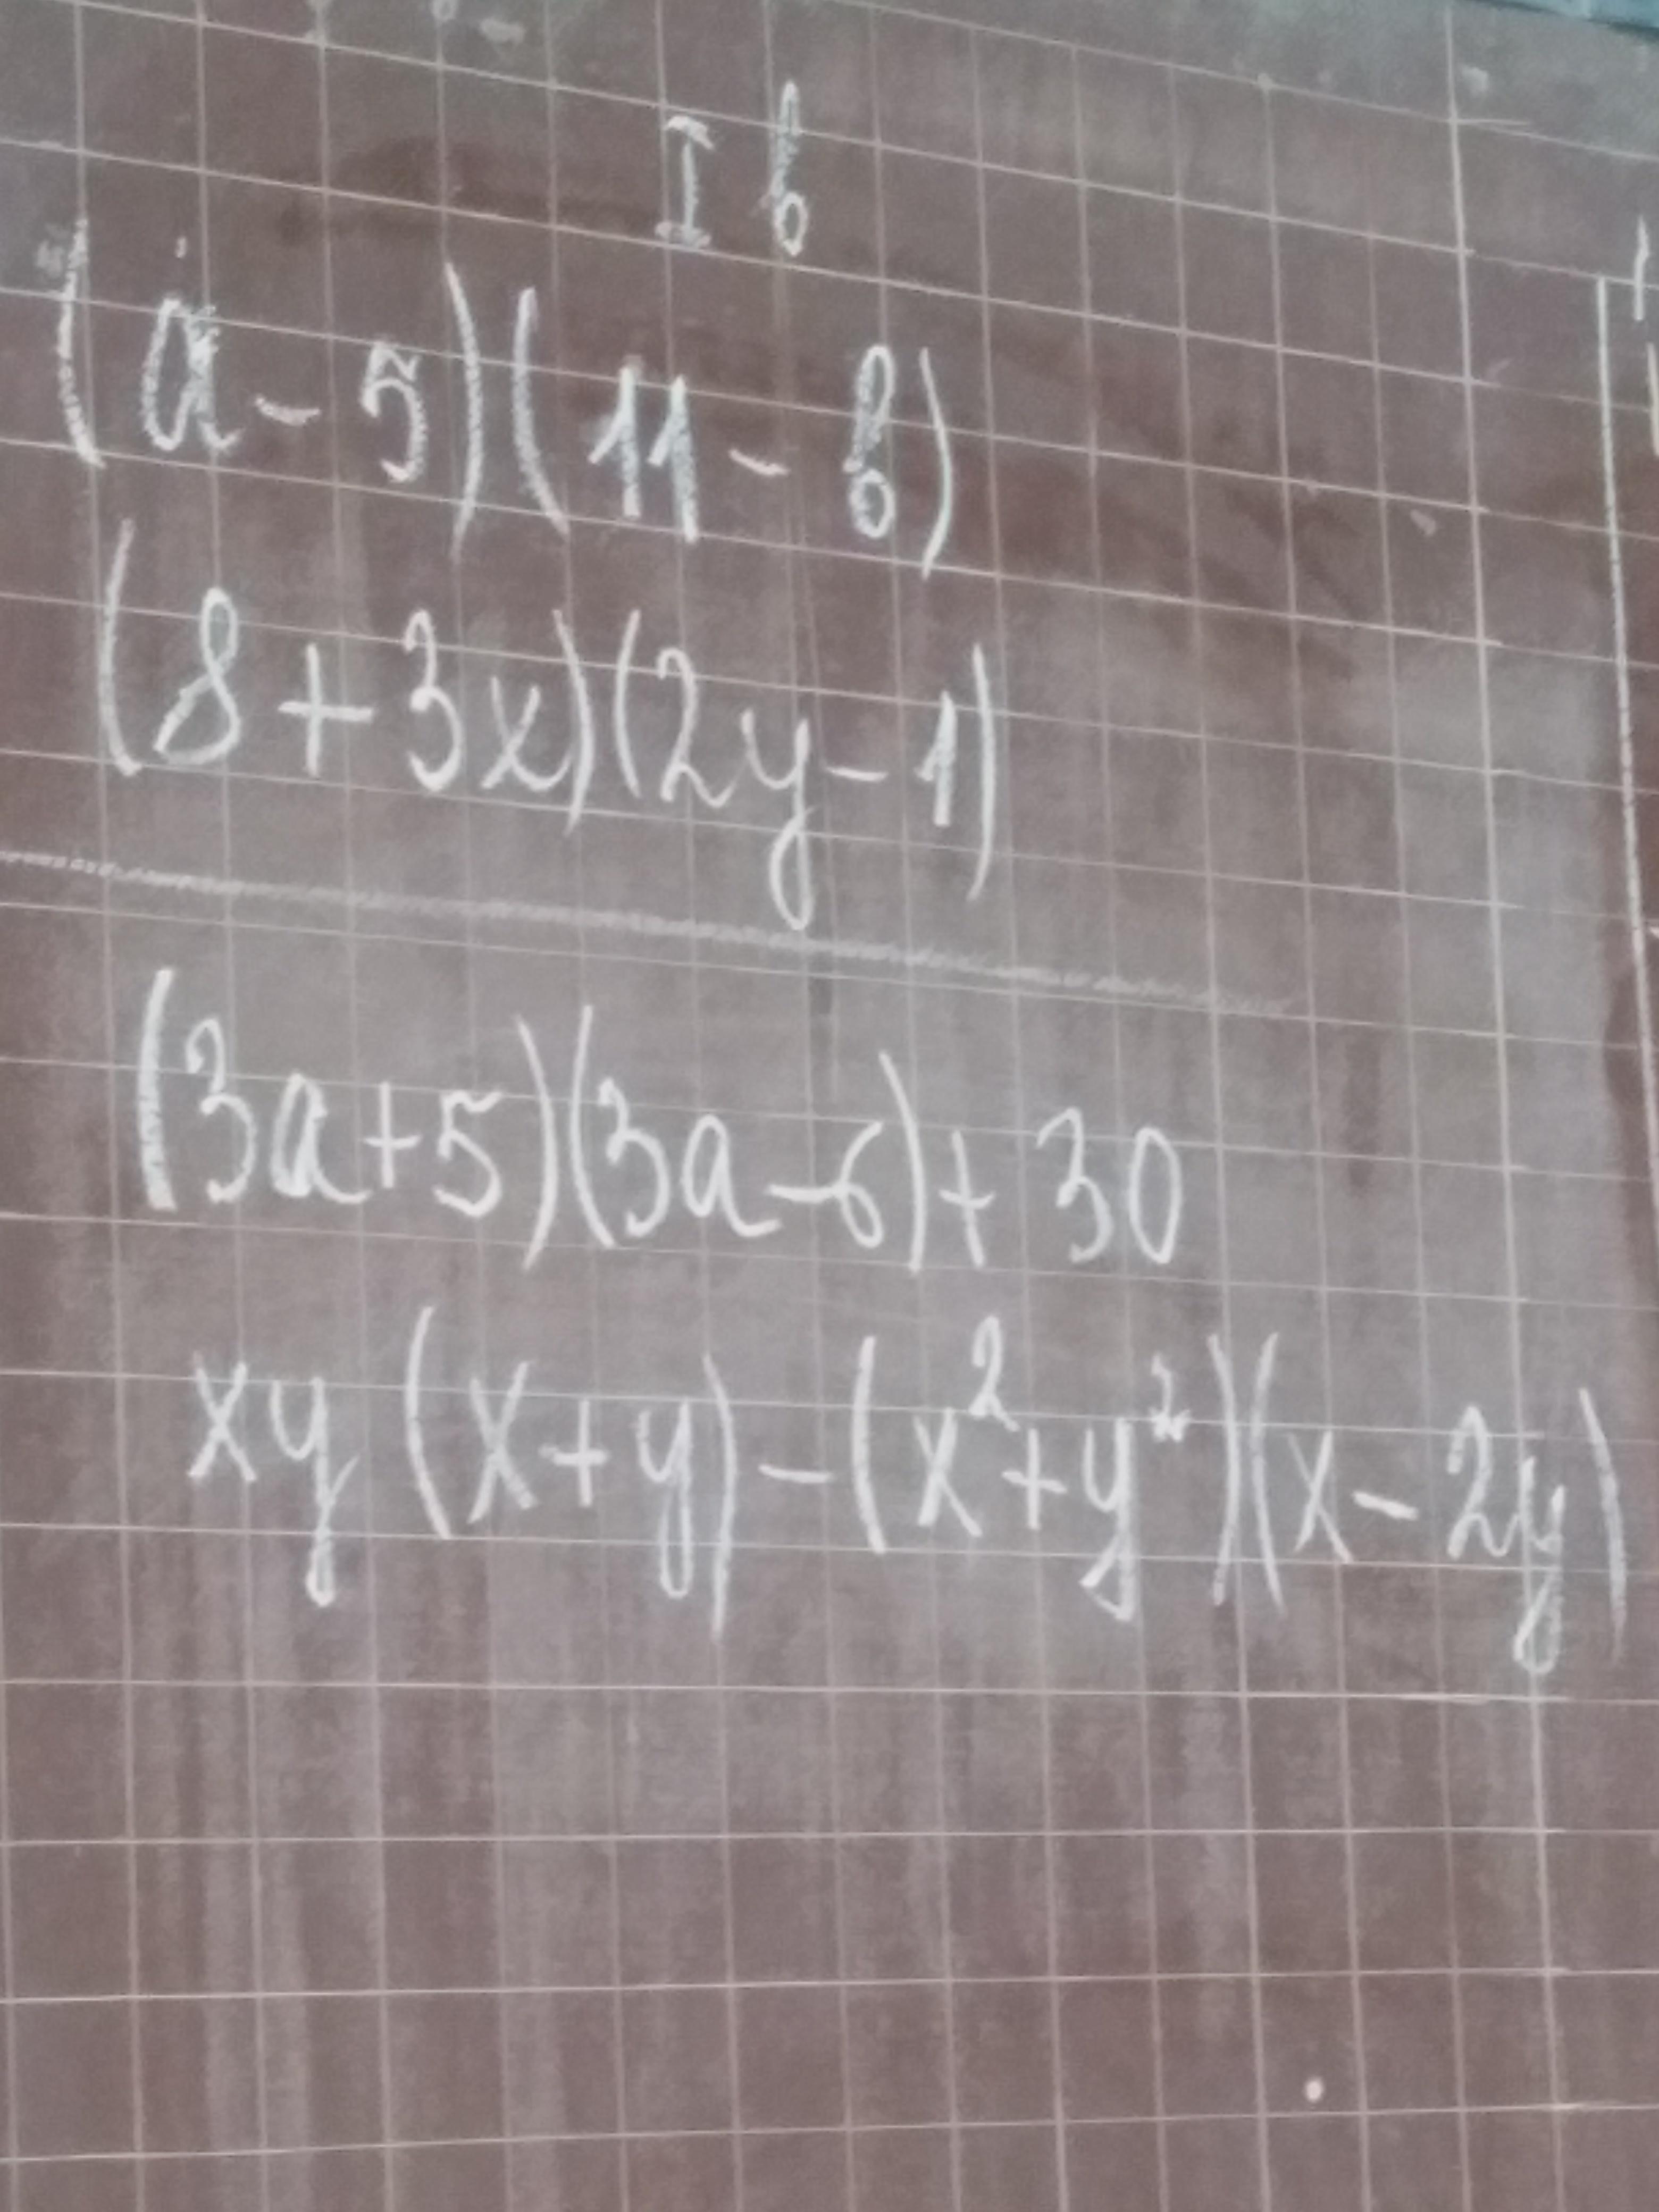 I в
(a - 5)(11 - в)
(8 + 3x)(2y - 1)
(3a + 5)(3a - 6) + 30
xy (x + y) - (x² + y²)(x - 2y)